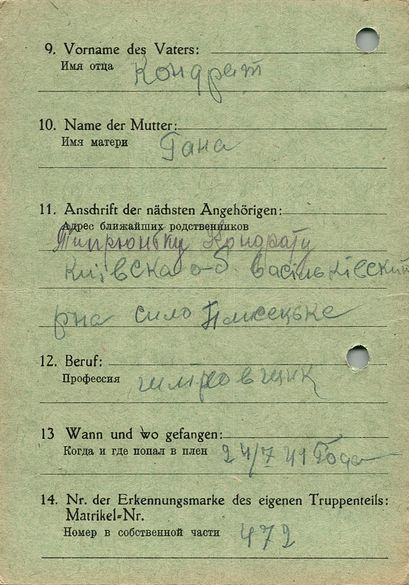 9. Vorname des Vaters:
Имя отца Кондрат
10. Name der Mutter:
Имя матери Гана
11. Anschrift der nächsten Angehörigen:
Адрес ближайших родственников
Кондрату
Київска об. Васількївский
рна сило
12. Beruf:
Профессия
13 Wann und wo gefangen:
Когда и где попал в плен 24/7 41 Года
14. Nr. der Erkennungsmarke des eigenen Truppenteils:
Matrikel-Nr.
Номер в собственной части 472